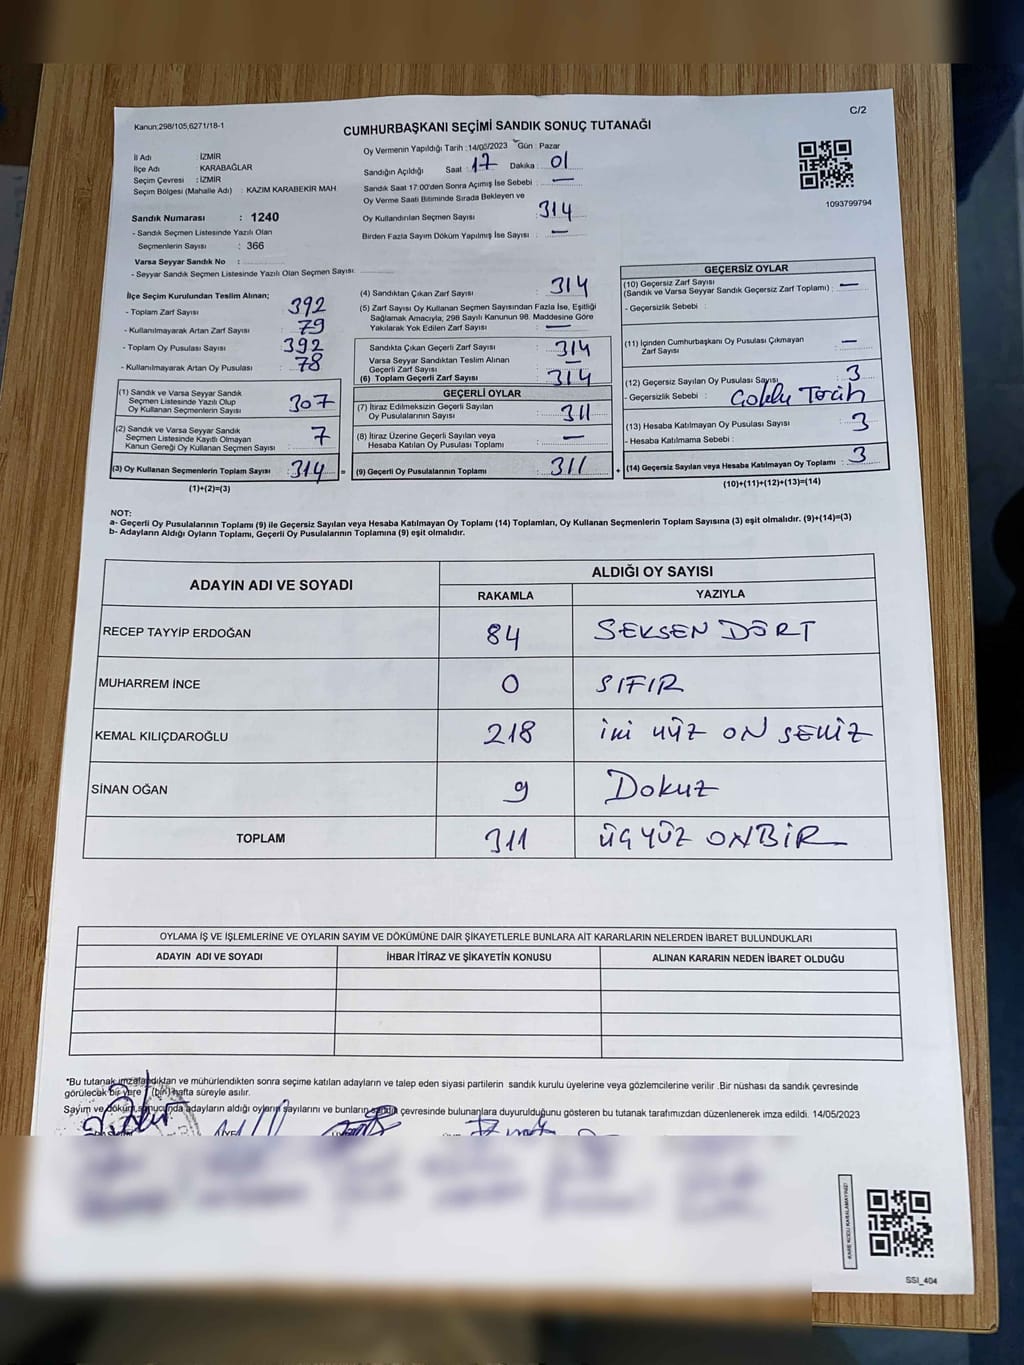 C/2
Kanun;298/105,6271/18-1
CUMHURBAŞKANI SEÇİMİ SANDIK SONUÇ TUTANAĞI
İl Adı İZMİR
İlçe Adı KARABAĞLAR
Seçim Çevresi : İZMİR
Seçim Bölgesi (Mahalle Adı) : KAZIM KARABEKİR MAH
Sandık Numarası : 1240
- Sandık Seçmen Listesinde Yazılı Olan
Seçmenlerin Sayısı : 366
Varsa Seyyar Sandık No :
- Seyyar Sandık Seçmen Listesinde Yazılı Olan Seçmen Sayısı:
Oy Vermenin Yapıldığı Tarih : 14/05/2023 Gün : Pazar
Sandığın Açıldığı Saat : 17 Dakika : 01
Sandık Saat 17:00'den Sonra Açımış İse Sebebi : —
Oy Verme Saati Bitiminde Sırada Bekleyen ve
Oy Kullandırılan Seçmen Sayısı : 314
Birden Fazla Sayım Döküm Yapılmış İse Sayısı : —
1093799794
İlçe Seçim Kurulundan Teslim Alınan;
- Toplam Zarf Sayısı : 392
- Kullanılmayarak Artan Zarf Sayısı : 79
- Toplam Oy Pusulası Sayısı : 392
- Kullanılmayarak Artan Oy Pusulası : 78
(1) Sandık ve Varsa Seyyar Sandık
Seçmen Listesinde Yazılı Olup
Oy Kullanan Seçmenlerin Sayısı : 307
(2) Sandık ve Varsa Seyyar Sandık
Seçmen Listesinde Kayıtlı Olmayan
Kanun Gereği Oy Kullanan Seçmen Sayısı : 7
(3) Oy Kullanan Seçmenlerin Toplam Sayısı : 314 =
(1)+(2)=(3)
(4) Sandıktan Çıkan Zarf Sayısı : 314
(5) Zarf Sayısı Oy Kullanan Seçmen Sayısından Fazla İse, Eşitliği
Sağlamak Amacıyla; 298 Sayılı Kanunun 98. Maddesine Göre
Yakılarak Yok Edilen Zarf Sayısı : —
Sandıkta Çıkan Geçerli Zarf Sayısı : 314
Varsa Seyyar Sandıktan Teslim Alınan
Geçerli Zarf Sayısı : —
(6) Toplam Geçerli Zarf Sayısı : 314
GEÇERLİ OYLAR
(7) İtiraz Edilmeksizin Geçerli Sayılan
Oy Pusulalarının Sayısı : 311
(8) İtiraz Üzerine Geçerli Sayılan veya
Hesaba Katılan Oy Pusulası Toplamı : —
(9) Geçerli Oy Pusulalarının Toplamı : 311 +
GEÇERSİZ OYLAR
(10) Geçersiz Zarf Sayısı
(Sandık ve Varsa Seyyar Sandık Geçersiz Zarf Toplamı) : —
- Geçersizlik Sebebi :
(11) İçinden Cumhurbaşkanı Oy Pusulası Çıkmayan
Zarf Sayısı : —
(12) Geçersiz Sayılan Oy Pusulası Sayısı : 3
- Geçersizlik Sebebi : Çoklu Tercih
(13) Hesaba Katılmayan Oy Pusulası Sayısı : 3
- Hesaba Katılmama Sebebi :
(14) Geçersiz Sayılan veya Hesaba Katılmayan Oy Toplamı : 3
(10)+(11)+(12)+(13)=(14)
NOT:
a- Geçerli Oy Pusulalarının Toplamı (9) ile Geçersiz Sayılan veya Hesaba Katılmayan Oy Toplamı (14) Toplamları, Oy Kullanan Seçmenlerin Toplam Sayısına (3) eşit olmalıdır. (9)+(14)=(3)
b- Adayların Aldığı Oyların Toplamı, Geçerli Oy Pusulalarının Toplamına (9) eşit olmalıdır.
ADAYIN ADI VE SOYADI ALDIĞI OY SAYISI
RAKAMLA YAZIYLA
RECEP TAYYİP ERDOĞAN 84 SEKSEN DÖRT
MUHARREM İNCE 0 SIFIR
KEMAL KILIÇDAROĞLU 218 iki yüz ON SEKİZ
SİNAN OĞAN 9 Dokuz
TOPLAM 311 ÜÇ YÜZ ONBİR
OYLAMA İŞ VE İŞLEMLERİNE VE OYLARIN SAYIM VE DÖKÜMÜNE DAİR ŞİKAYETLERLE BUNLARA AİT KARARLARIN NELERDEN İBARET BULUNDUKLARI
ADAYIN ADI VE SOYADI İHBAR İTİRAZ VE ŞİKAYETİN KONUSU ALINAN KARARIN NEDEN İBARET OLDUĞU
*Bu tutanak imzalandıktan ve mühürlendikten sonra seçime katılan adayların ve talep eden siyasi partilerin sandık kurulu üyelerine veya gözlemcilerine verilir .Bir nüshası da sandık çevresinde
görülecek bir yere 1(bir) hafta süreyle asılır.
Sayım ve döküm sonucunda adayların aldığı oyların sayılarını ve bunların sandık çevresinde bulunanlara duyurulduğunu gösteren bu tutanak tarafımızdan düzenlenerek imza edildi. 14/05/2023
KARE KODU KARALAMAYINIZ!
SSI_404